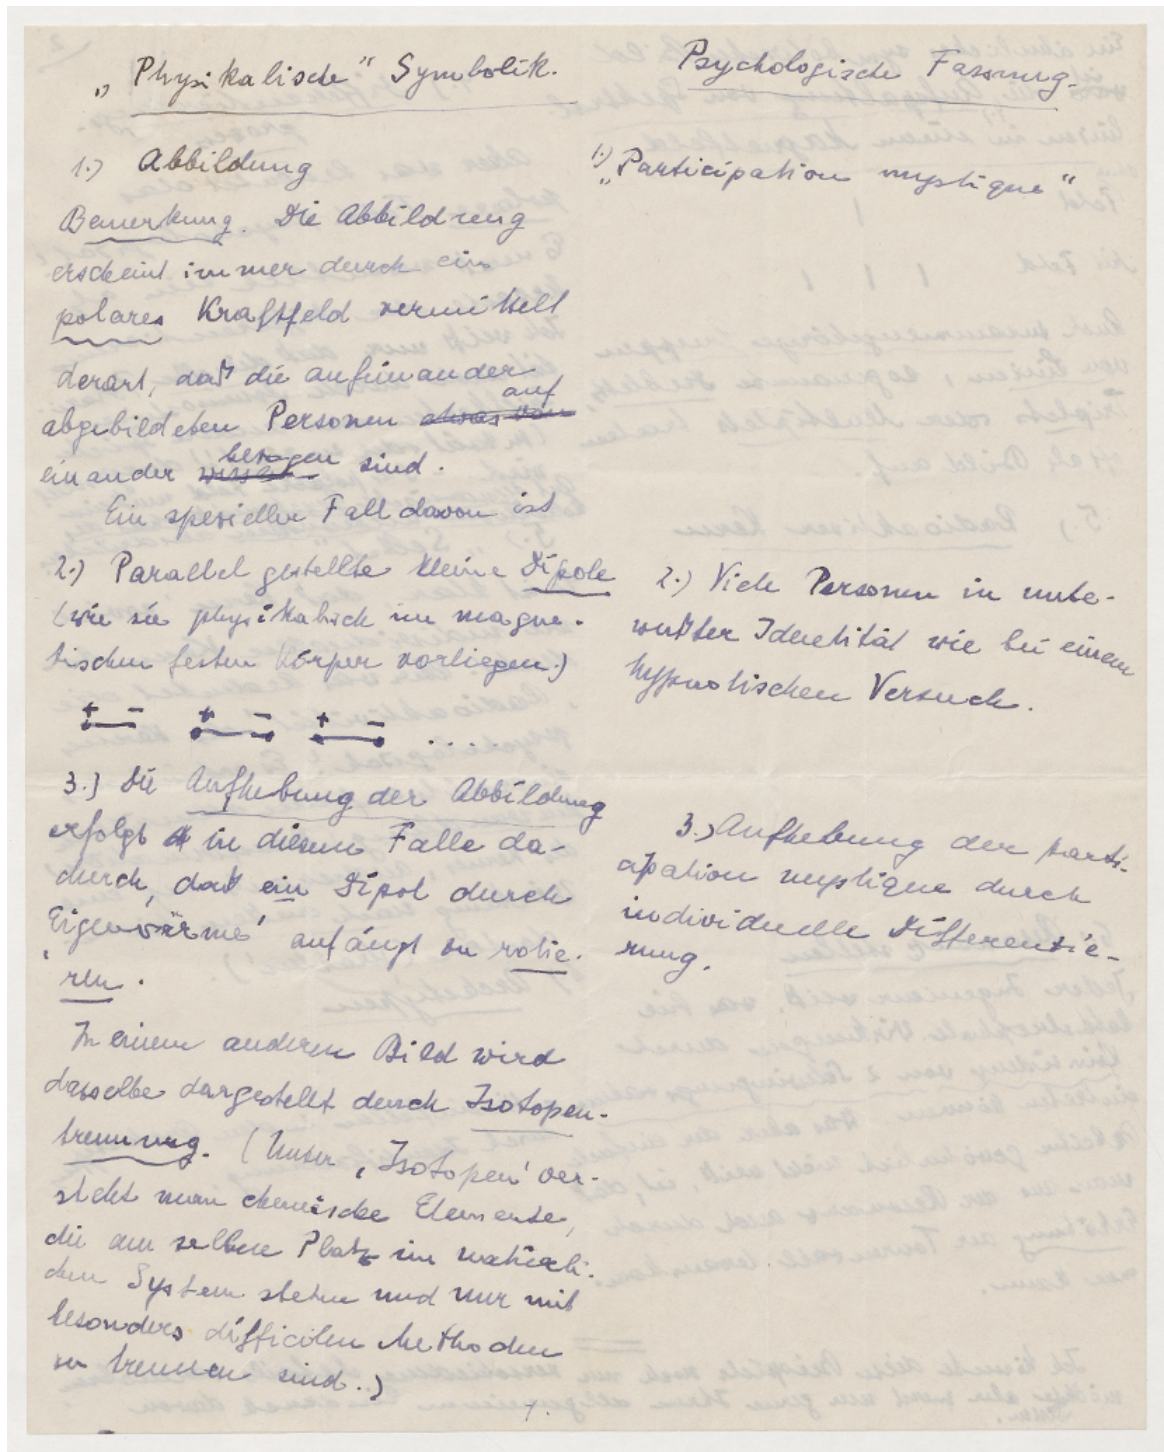 „Physikalische“ Symbolik.
1.) Abbildung
Bemerkung. Die Abbildung
erscheint immer durch ein
polares Kraftfeld vermittelt
derart, daß die aufeinander
abgebildeten Personen etwas von auf
einander wissen bezogen sind.
Ein spezieller Fall davon ist
2.) Parallel gestellte kleine Dipole
(wie sie physikalisch im magne-
tischen festen Körper vorliegen.)
+ – + – + – ....
3.) Die Aufhebung der Abbildung
erfolgt in diesem Falle da-
durch, daß ein Dipol durch
‚Eigenwärme‘ anfängt zu rotie-
ren.
In einem anderen Bild wird
dasselbe dargestellt durch Isotopen-
trennung. (Unter ‚Isotopen‘ ver-
steht man chemische Elemente,
die am selben Platz im natürli-
chen System stehen und nur mit
besonders difficilen Methoden
zu trennen sind.)
Psychologische Fassung.
1.) „Participation mystique“
2.) Viele Personen in unbe-
wußter Identität wie bei einem
hypnotischen Versuch.
3.) Aufhebung der parti-
cipation mystique durch
individuelle Differentie-
rung.
1.